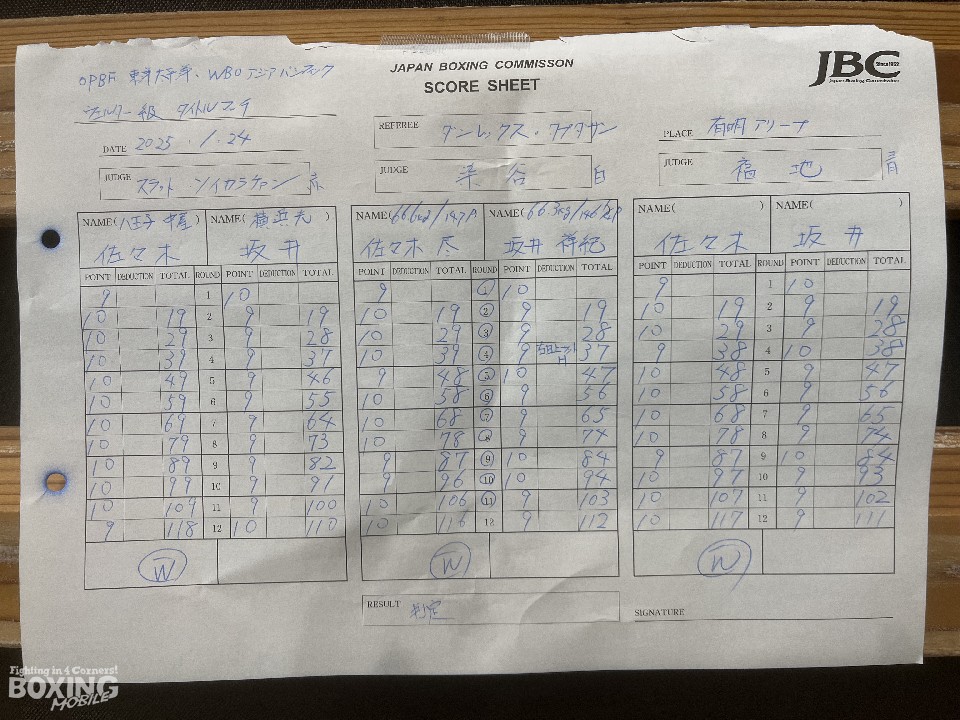 OPBF 東洋太平洋・WBOアジアパシフィック
ウェルター級 タイトルマッチ
DATE 2025.1.24
JAPAN BOXING COMMISSON
SCORE SHEET
JBC Since1952
Japan Boxing Commission
REFEREE ダンレックス・タプダサン
PLACE 有明アリーナ
JUDGE スラット ソイカラチャン 赤
JUDGE 染谷 白
JUDGE 福地 青
NAME(八王子中屋) NAME(横浜光) NAME( 66.6kg/147P NAME( 66.3kg/146 NAME( ) NAME( )
佐々木 坂井 佐々木 尽 坂井 祥紀 佐々木 坂井
POINT DEDUCTION TOTAL ROUND POINT DEDUCTION TOTAL POINT DEDUCTION TOTAL ROUND POINT DEDUCTION TOTAL POINT DEDUCTION TOTAL ROUND POINT DEDUCTION TOTAL
9 1 10 9 1 10 9 1 10
10 19 2 9 19 10 19 2 9 19 10 19 2 9 19
10 29 3 9 28 10 29 3 9 28 10 29 3 9 28
10 39 4 9 37 10 39 4 9 37 9 38 4 10 38
10 49 5 9 46 9 48 5 10 47 10 48 5 9 47
10 59 6 9 55 10 58 6 9 56 10 58 6 9 56
10 69 7 9 64 10 68 7 9 65 10 68 7 9 65
10 79 8 9 73 10 78 8 9 74 10 78 8 9 74
10 89 9 9 82 9 87 9 10 84 9 87 9 10 84
10 99 10 9 91 9 96 10 10 94 10 97 10 9 93
10 109 11 9 100 10 106 11 9 103 10 107 11 9 102
9 118 12 10 110 10 116 12 9 112 10 117 12 9 111
W W W
RESULT 判定
SIGNATURE
Fighting in 4 Corners!
BOXING
MOBILE